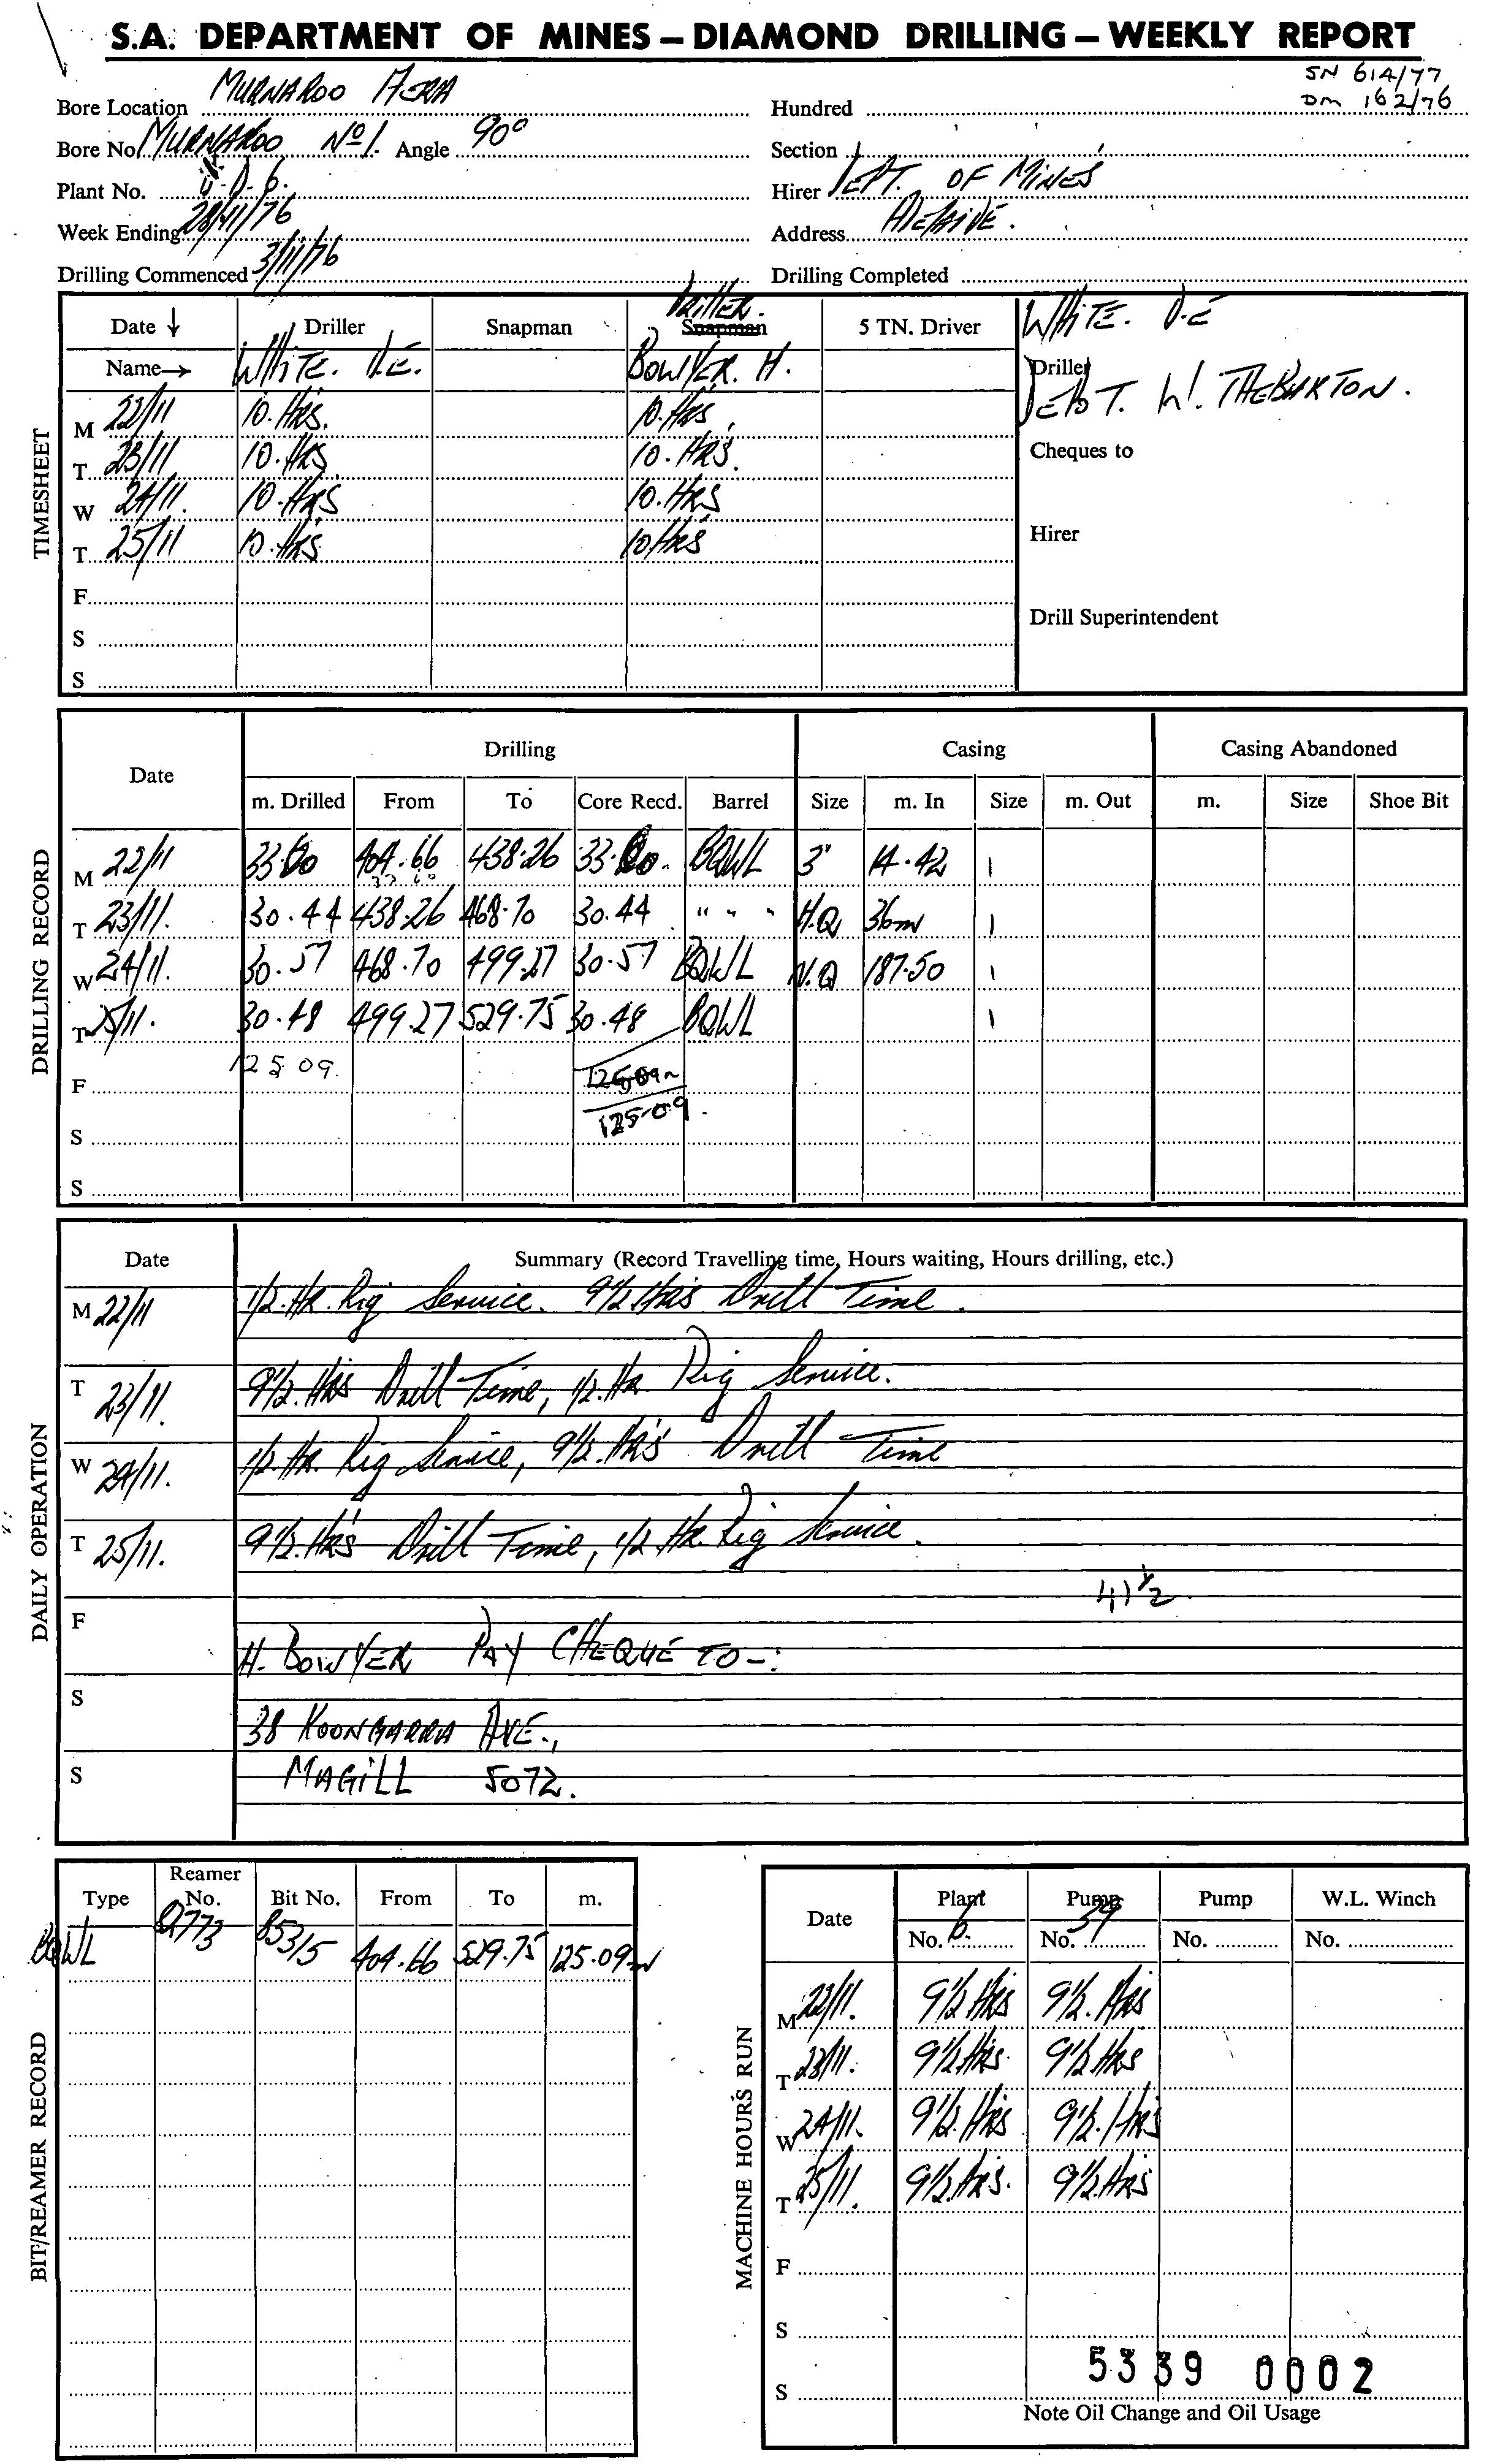 S.A. DEPARTMENT OF MINES – DIAMOND DRILLING – WEEKLY REPORT
SN 614/77
DM 162/76
Bore Location MURNAROO AERA
Hundred
Bore No. MURNAROO No 1. Angle 90°
Section
Plant No. 6.
Hirer DEPT. OF MINES
Week Ending 28/11/76
Address ADELAIDE.
Drilling Commenced 3/11/76
Drilling Completed
TIMESHEET
Date ↓ Driller Snapman Driller. Snapman 5 TN. Driver
Name → WHITE. D.E. BOWYER. H.
M 22/11 10. HRS. 10. HRS.
T 23/11 10. HRS 10. HRS.
W 24/11. 10. HRS 10. HRS
T 25/11 10. HRS 10 HRS
F
S
S
WHITE. D.E
Driller
DEPOT. W. THEBARTON.
Cheques to
Hirer
Drill Superintendent
DRILLING RECORD
Date Drilling Casing Casing Abandoned
m. Drilled From To Core Recd. Barrel Size m. In Size m. Out m. Size Shoe Bit
M 22/11 33.60 404.66 438.26 33.60. BQWL 3" 14.42
33 60
T 23/11. 30.44 438.26 468.70 30.44 " " " H.Q 36m
W 24/11. 30.57 468.70 499.27 30.57 BQWL N.Q 187.50
T 25/11. 30.48 499.27 529.75 30.48 BQWL
F 125 09. 125.09m
125.09.
S
S
DAILY OPERATION
Date Summary (Record Travelling time, Hours waiting, Hours drilling, etc.)
M 22/11 1/2. HR. Rig Service. 9 1/2 HRS Drill Time.
T 23/11. 9 1/2. HRS Drill Time, 1/2. HR. Rig Service.
W 24/11. 1/2. HR. Rig Service, 9 1/2. HRS Drill Time
T 25/11. 9 1/2. HRS Drill Time, 1/2 HR. Rig Service.
41 1/2
F
H. BOWYER PAY CHEQUE TO -:
S
38 KOONGARRA AVE.,
S MAGILL 5072.
BIT/REAMER RECORD
Type Reamer No. Bit No. From To m.
BQWL 85315 404.66 529.75 125.09m
MACHINE HOURS RUN
Date Plant Pump Pump W.L. Winch
No. 6. No. 39 No. No.
M 22/11. 9 1/2 HRS 9 1/2. HRS
T 23/11. 9 1/2 HRS. 9 1/2 HRS
W 24/11. 9 1/2. HRS 9 1/2. HRS
T 25/11. 9 1/2. HRS. 9 1/2 HRS
F
S
5339 0002
S
Note Oil Change and Oil Usage